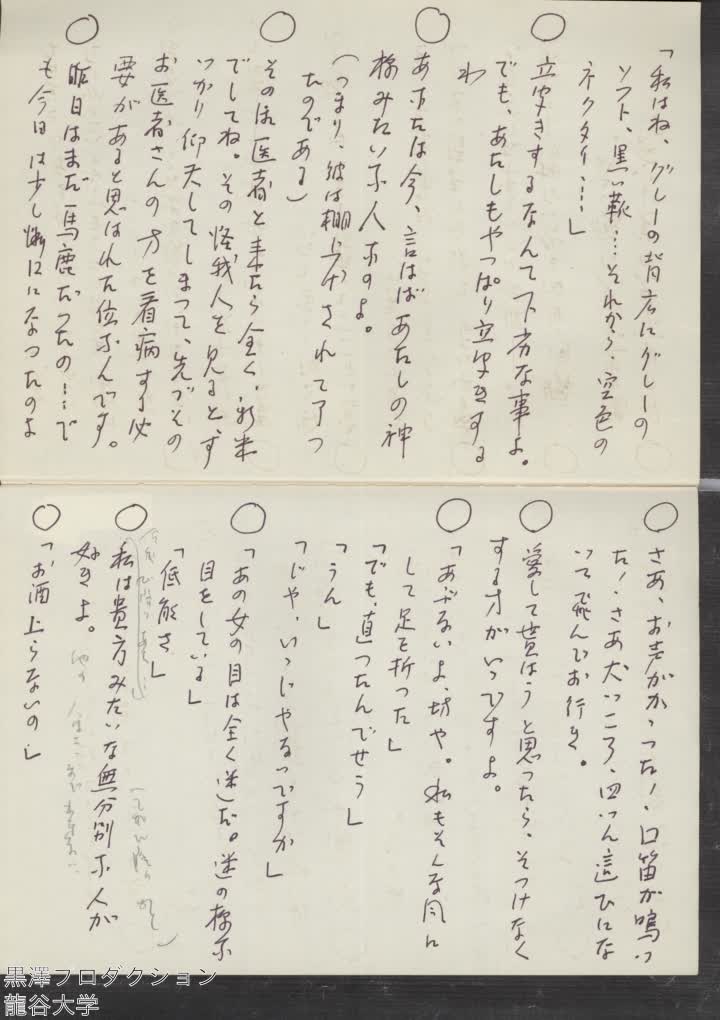 「私はね、グレーの背広にグレーの
ソフト、黒い靴…それから、空色の
ネクタイ……」
立聞きするなんて下劣な事よ。
でも、あたしもやっぱり立聞きする
わ
あなたは今、言はばあたしの神
様みたいな人なのよ。
(つまり、彼は棚上げされて了つ
たのである)
その医者と来たら全く、新米
でしてね。その怪我人を見ると、す
つかり仰天してしまつて、先づその
お医者さんの方を看病する必
要があると思はれた位なんです。
昨日はまだ馬鹿だつたの……で
も今日は少し悧口になつたのよ
さあ、お声がかつた!口笛が鳴つ
た!さあ犬つころ、四つん這ひにな
つて飛んでお行き。
愛して貰はうと思つたら、そつけなく
する方がいゝですよ。
「あぶないよ、坊や。私もそんな風に
して足を折つた」
「でも、直つたんでせう」
「うん」
「じや、いゝじやないですか」
「あの女の目は全く逆だ。逆の様な
目をしている」
「低能さ」
私は貴方みたいな無分別な人が
好きよ。
「お酒上らないの」
黒澤プロダクション
龍谷大学